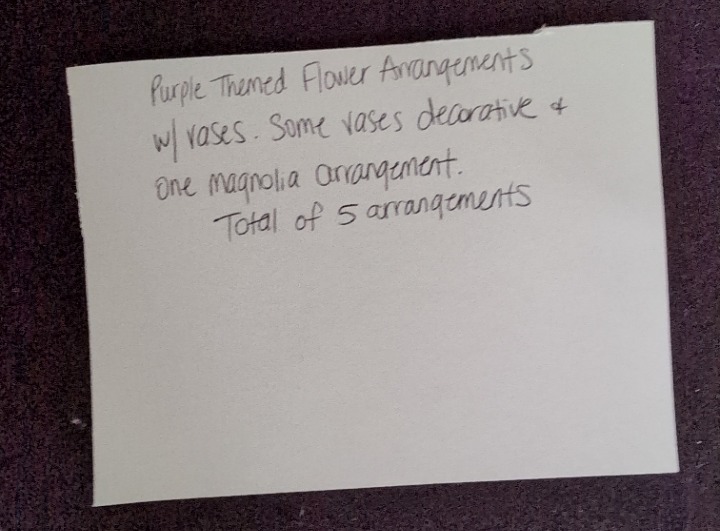 Purple Themed Flower Arrangements
w/ vases. Some vases decorative &
one magnolia arrangement.
Total of 5 arrangements